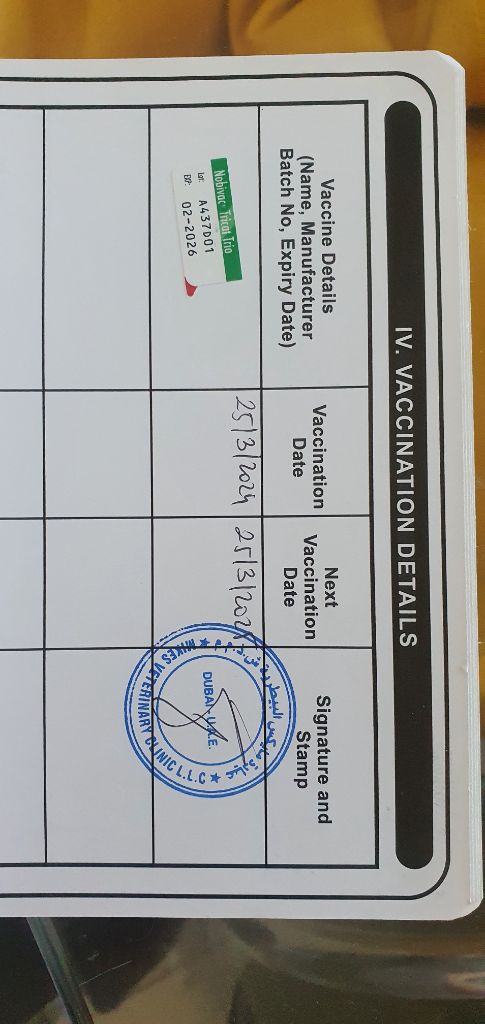 IV. VACCINATION DETAILS
Vaccine Details
(Name, Manufacturer
Batch No, Expiry Date)
Vaccination
Date
Next
Vaccination
Date
Signature and
Stamp
Nobivac Tricat Trio
Lot: A437D01
EXP: 02-2026
25/3/2024
25/3/202
MIKES VETERINARY CLINIC L.L.C
DUBAI U.A.E.